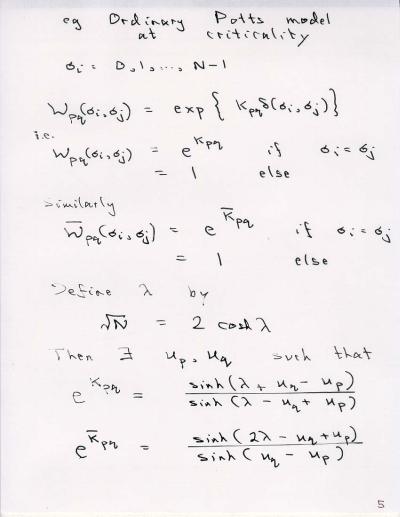 eg Ordinary Potts model
at criticality
σi = 0,1,..., N-1
Wpq(σi,σj) = exp{ Kpq δ(σi,σj)}
i.e.
Wpq(σi,σj) = e^Kpq if σi = σj
= 1 else
Similarly
W̅pq(σi,σj) = e^K̅pq if σi = σj
= 1 else
Define λ by
√N = 2 cosh λ
Then ∃ up, uq such that
e^Kpq = sinh(λ + uq - up) / sinh(λ - uq + up)
e^K̅pq = sinh(2λ - uq + up) / sinh(uq - up)
5